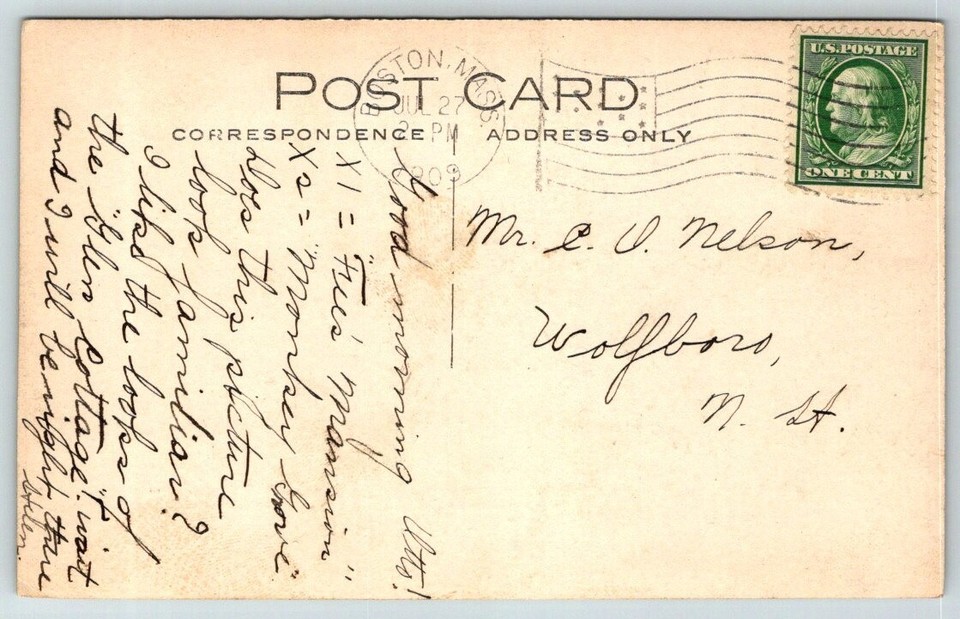 POST CARD
CORRESPONDENCE
ADDRESS ONLY
BOSTON, MASS.
JUL 27
2 PM
1909
U.S. POSTAGE
ONE CENT
Mr. C. O. Nelson,
Wolfboro,
N. H.
Good morning Otto!
X1 = "Fies' Mansion"
X2 = "Monkey Grove".
Does this picture
look familiar?
I like the looks of
the "Glen Cottage". wait
and I will be right there
Helen.